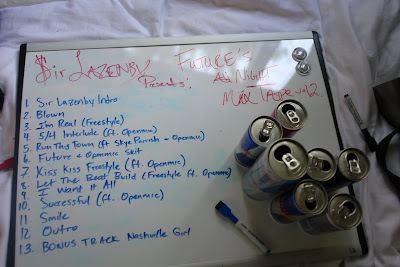 $ir Lazenby
Presents:
Future's
All Night
MixTape vol 2.
1. Sir Lazenby Intro
2. Blown
3. I'm Real (Freestyle)
4. 5/4 Interlude (ft. Openmic)
5. Run This Town (ft Skye Parrish + Openmic)
6. Future + Openmic Skit
7. Kiss Kiss Freestyle (ft. Openmic)
8. Let The Beat Build (Freestyle ft Openmic)
9. I Want It All
10. Successful (ft. Openmic)
11. Smile
12. Outro
13. BONUS TRACK Nashville Girl